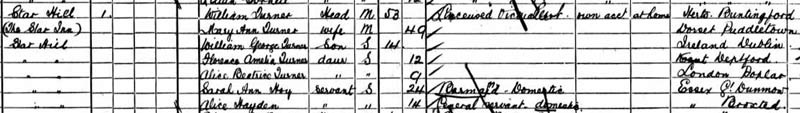 Star Hill 1 William Turner Head M 53 Licensed Victualler own acct at home Herts. Buntingford
(The Star Inn) Mary Ann Turner wife M 49 Dorset Puddletown
Star Hill William George Turner Son S 14 Ireland Dublin
" " Florence Amelia Turner daur S 12 Kent Deptford
" " Alice Beatrice Turner " " 9 London Poplar
" " Sarah Ann Hoy servant S 24 Barmaid - Domestic Essex Gt Dunmow
" " Alice Hayden " " 14 General servant domestic " Broxted